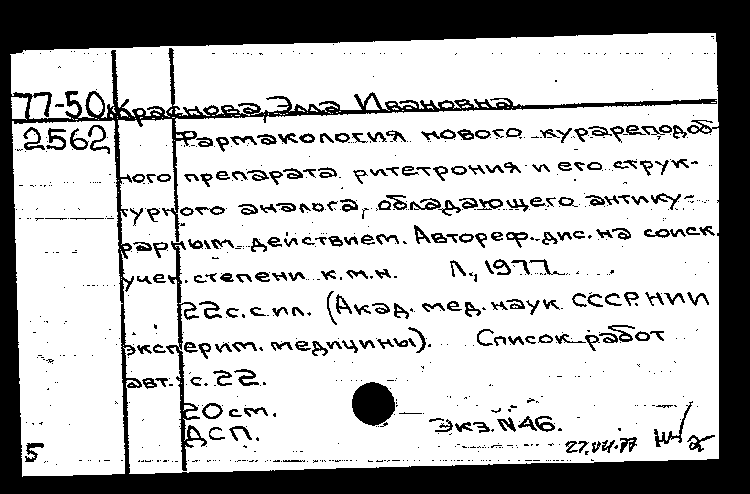 77-50к Краснова, Элла Ивановна.
2562 Фармакология нового курареподоб-
ного препарата ритетрония и его струк-
турного аналога, обладающего антику-
рарным действием. Автореф. дис. на соиск.
учен. степени к.м.н. Л., 1977.
22 с. с ил. (Акад. мед. наук СССР. НИИ
эксперим. медицины). Список работ
авт.: с. 22.
20 см.
ДСП. Экз. N46.
5